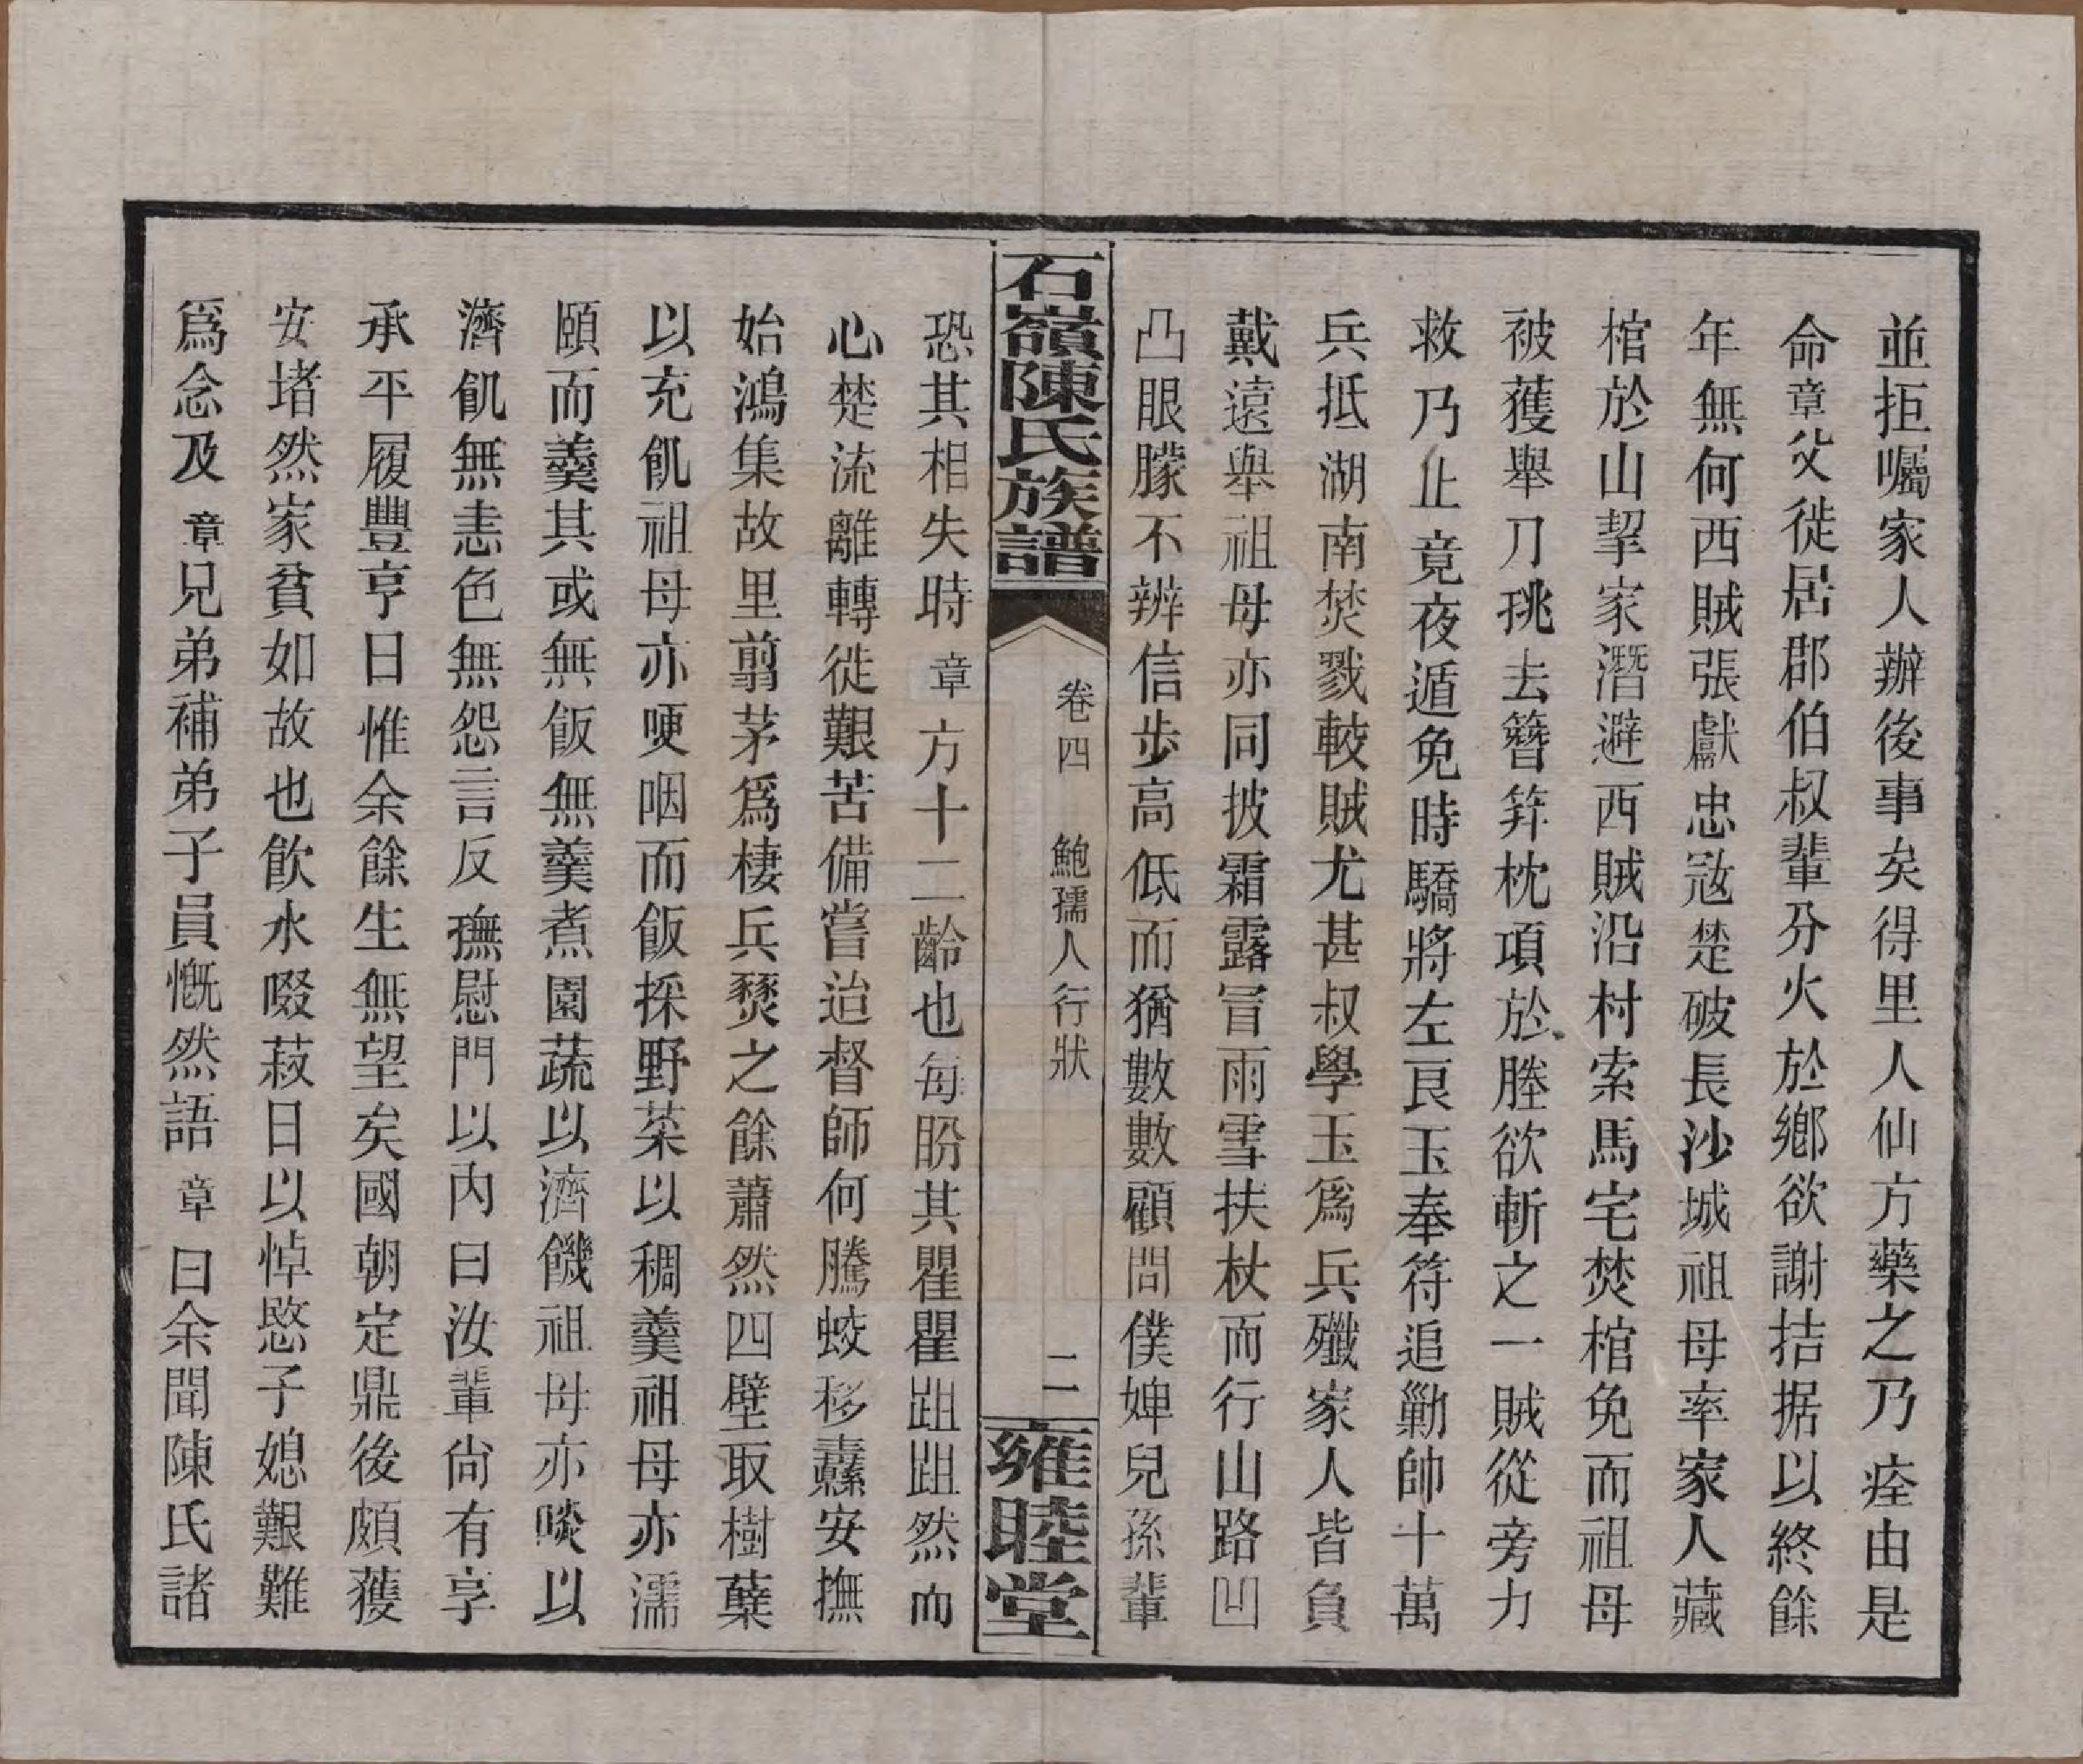 並拒囑家人辦後事矣得里人仙方藥之乃痊由是
命章父徙居郡伯叔輩分火於鄉欲謝拮据以終餘
年無何西賊張獻忠冦楚破長沙城祖母率家人藏
棺於山挈家潛避西賊沿村索馬宅焚棺免而祖母
被獲舉刀挑去簪笄枕項於塍欲斬之一賊從旁力
救乃止竟夜遁免時驕將左良玉奉符追勦帥十萬
兵抵湖南焚戮較賊尤甚叔學玉爲兵殲家人皆負
戴遠舉祖母亦同披霜露冒雨雪扶杖而行山路凹
凸眼朦不辨信步高低而猶數數顧問僕婢兒孫輩
石嶺陳氏族譜
卷四 鮑孺人行狀 二
雍睦堂
恐其相失時章方十二齡也每盼其瞿瞿跙跙然而
心楚流離轉徙艱苦備嘗迨督師何騰蛟移纛安撫
始鴻集故里翦茅爲棲兵燹之餘蕭然四壁取樹蘖
以充飢祖母亦哽咽而飯採野菜以稠羹祖母亦濡
頤而羹其或無飯無羹煮園蔬以濟饑祖母亦啖以
濟飢無恚色無怨言反撫慰門以內曰汝輩尙有享
承平履豐亨日惟余餘生無望矣國朝定鼎後頗獲
安堵然家貧如故也飮水啜菽日以悼愍子媳艱難
爲念及章兄弟補弟子員慨然語章曰余聞陳氏諸